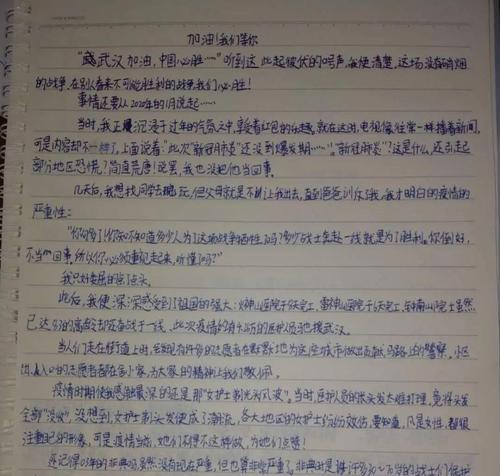 加油!我们等你
"武汉加油,中国必胜…"听到这此起彼伏的口号声,我便清楚,这场没有硝烟
的战争,在别人看来不可能胜利的战争,我们必胜!
事情还要从2020年的1月说起……
当时,我正沉浸于过年的气氛之中,享受着红包的乐趣,就在这时,电视像往常一样播着新闻,
可是内容却不一样了,上面说着"此次'新冠肺炎'还没到爆发期……"。"新冠肺炎"?这是什么,还引起
部分地区恐慌?简直荒唐!说罢,我也没把他当回事。
几天后,我想找同学去玩,但父母就是不让我出去,直到爸爸训斥了我,我才明白的疫情的
严重性:
"你知不知道多少人为了这场战争牺牲了吗?多少战士奔赴一线就是为了胜利。你倒好,
不当回事,所以你必须重视起来,听懂了吗?"
我只好委屈的点了点头。
此后,我便深深感受到了祖国的强大:火神山医院于天完工,雷神山医院于天完工,钟南山院士虽然
已达的高龄却还奋战于一线,此次疫情的有万的医护人员支援武汉。
当人们走在街道上时,会发现有许多的志愿者在默默地为这座城市做出贡献,马路上的警察。小区
门口的志愿者都在舍小家,为大家的精神让我们敬佩。
疫情时期使我感触最深的还是那"女护士剃光头风波"。当时,医护人员的头发太难打理,竟将头发
全部"没收",没想到,女护士剃头发便成了潮流,各大地区的女护士们纷纷效仿,要知道,凡是女性,都很
注重自己的形象,可是疫情当前,她们不得不这样做,为她们点赞!
还记得03年的非典吗?虽然没有现在严重,但也算非常严重了。非典时是许多20~70岁的战士们保护